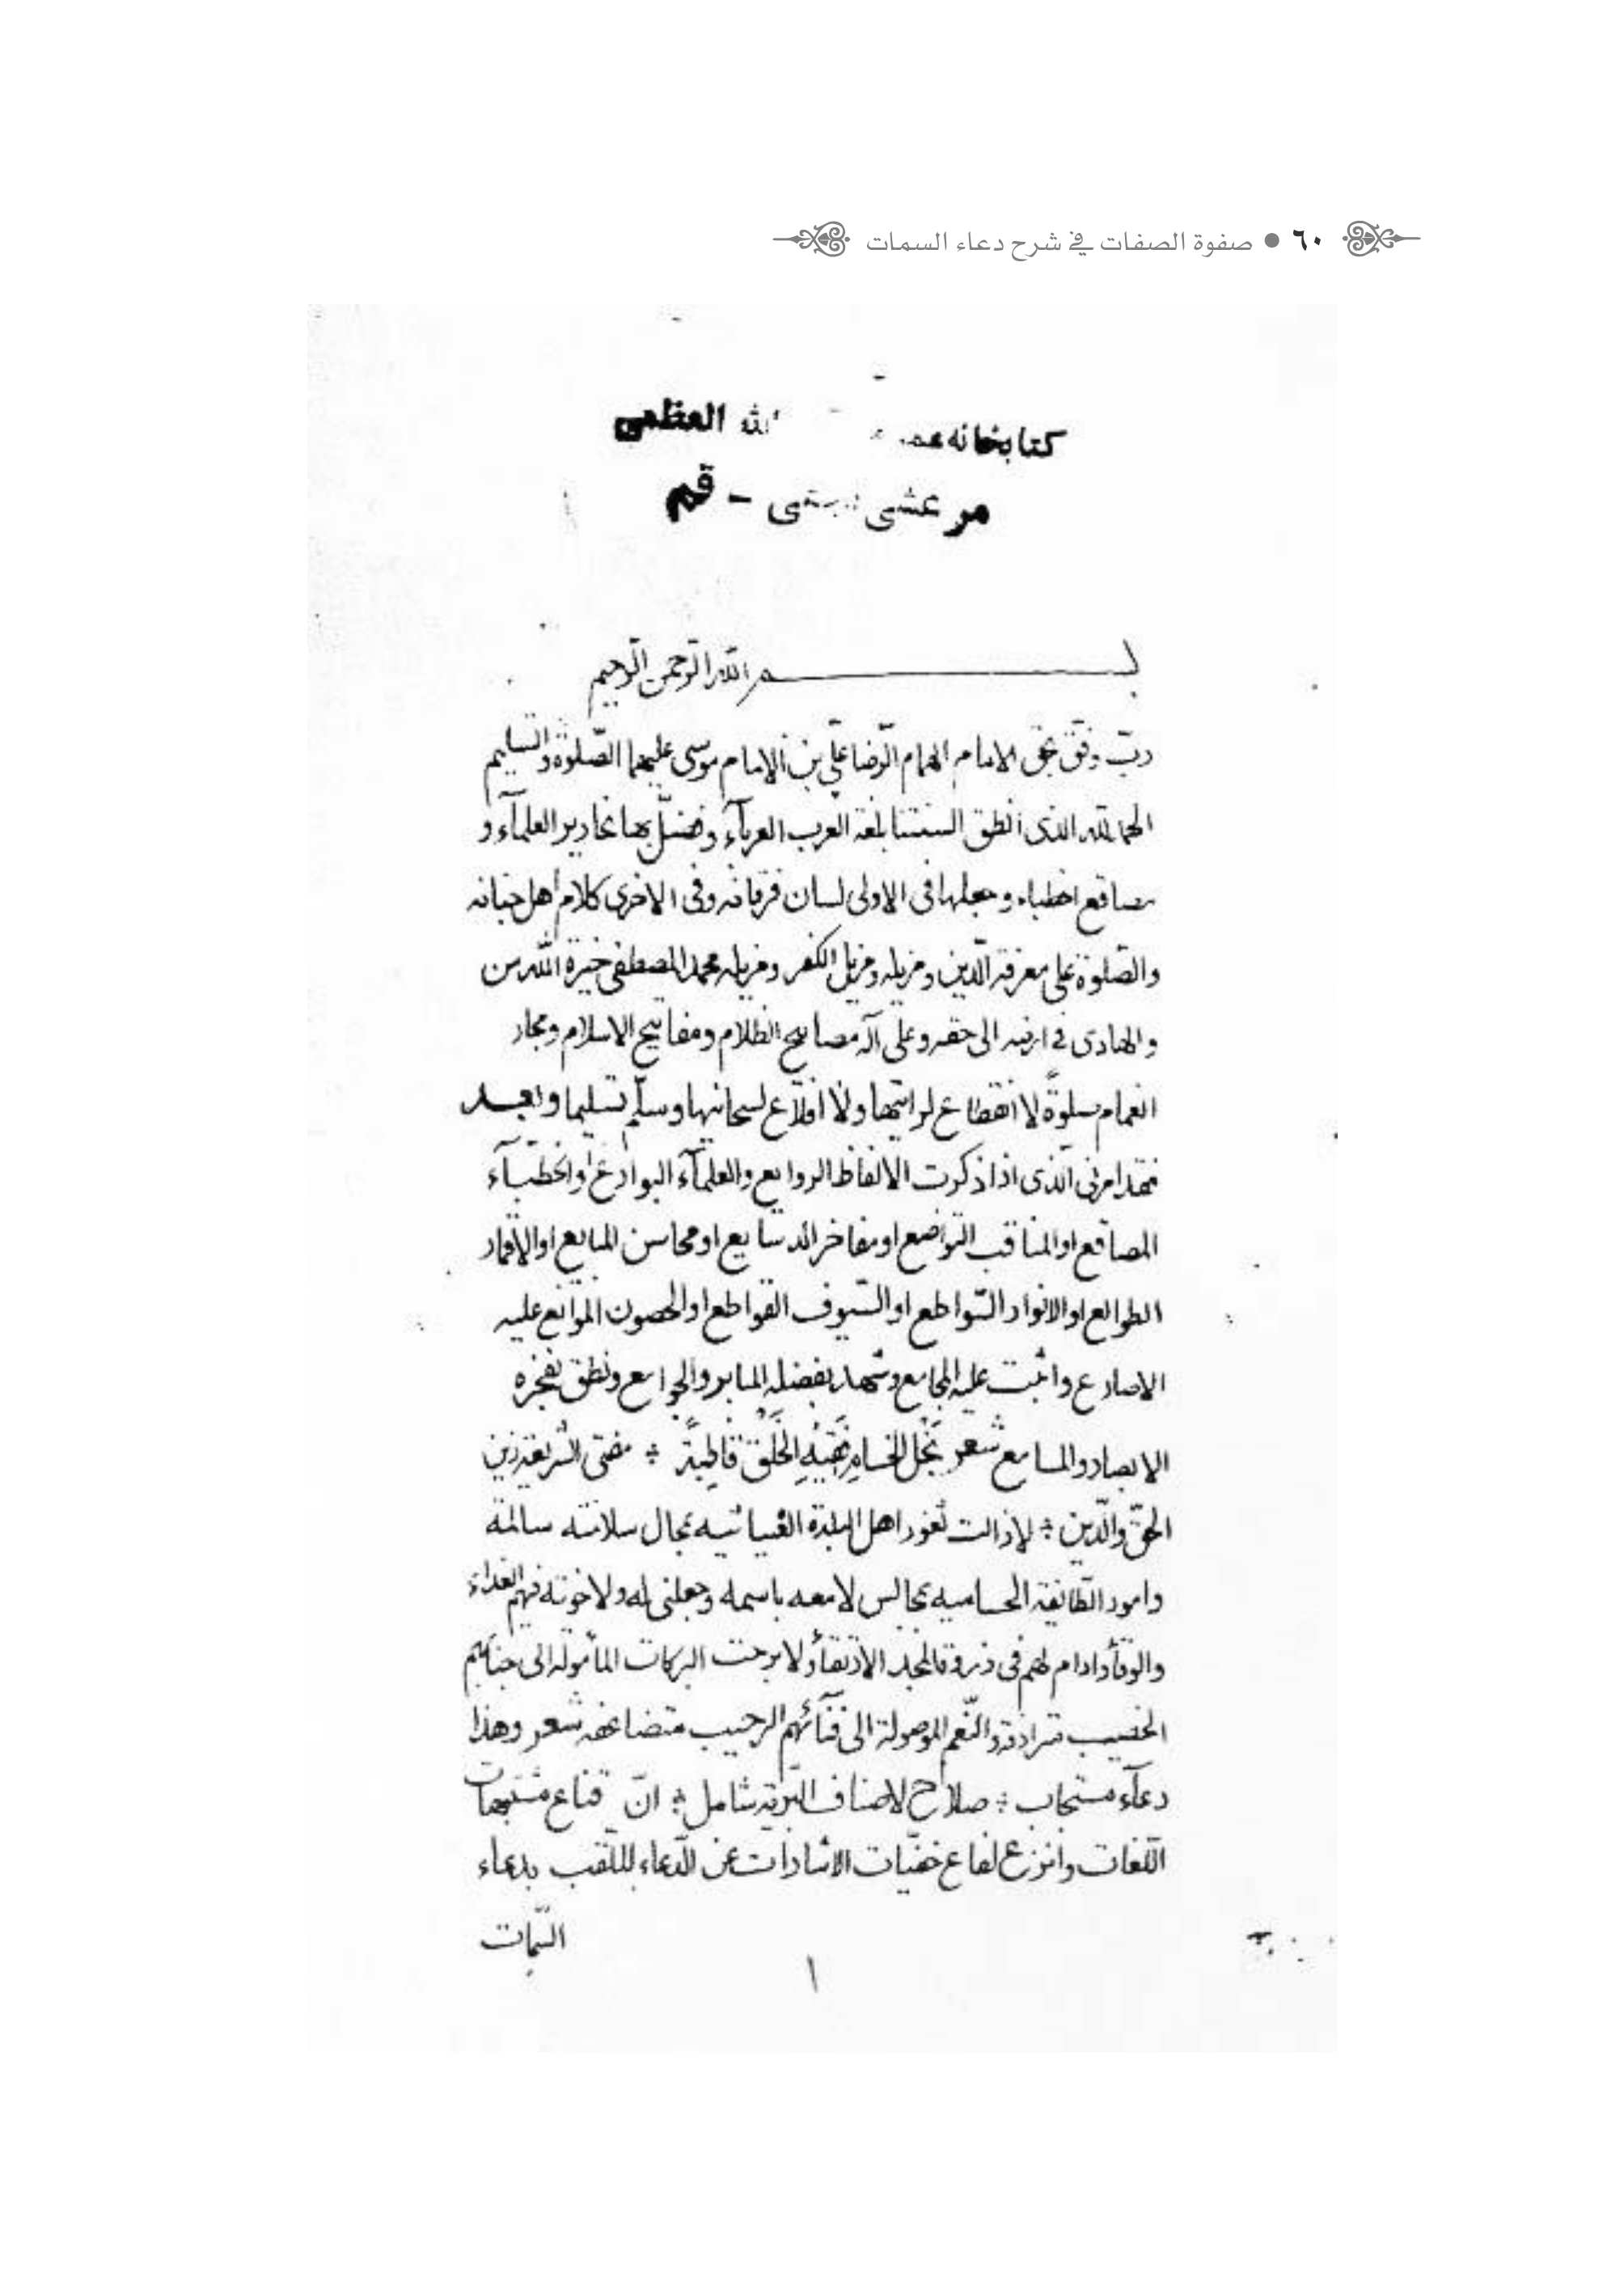 ٦٠ ● صفوة الصفات في شرح دعاء السمات
كتابخانه الله العظمى
مرعشى - قم
بسم الله الرحمن الرحيم
ربّ وفّق بحق الامام الهمام الرّضا علّي بن الامام موسى عليهما الصّلوة والتسليم
الحمد لله الذى انطق السنتنا بلغة العرب العربآء وفضّل بها نحارير العلمآء و
مصاقع الخطباء وجعلها فى الاولى لسان فرقانه وفى الاخرى كلام أهل جنانه
والصّلوة على معرفة الدّين ومزيل الكفر ومزيله محمد المصطفى خيرة الله من
والهادى في ارضه الى حقه وعلى آله مصابيح الظلام ومفاتيح الاسلام ومجار
الغمام صلوةً لا انقطاع لراتبها ولا اقلاع لسحائبها وسلّم تسليما وبعد
فقد امرنى الّذى اذا ذكرت الالفاظ الروايع والعلمآء البوارع او الخطبآء
المصاقع او المناقب التواضع او مفاخر الدسايع او محاسن المنابع او الاقمار
الطوالع او الانوار السّواطع او السّيوف القواطع او الحصون الموانع عليه
الاصابع واثبت عليه المجامع وشهد بفضله المنابر والجوامع ونطق بفخره
الابصار والمسامع شعر نجل الحسام فقيه الخلق قاطبةً ؞ مفتى الشريعة زين
الحقّ والّدين ؞ لا زالت ثغور اهل البلدة الغياثيه بجال سلامته سالمة
وامور الطّائفة الحساميه بمجالس لامعه باسمه وجعلنى له ولاخوته فيهم الفداء
والوقاء وادام لهم فى ذروة المجد الارتقاء ولا برحت البركات المأمولة الى جنابهم
الخصيب مترادفة والنّعم الموصولة الى فنآئهم الرحيب متضاعفه شعر وهذا
دعآء مستجاب ؞ صلاح لاصناف البريّة شامل ؞ انّ قناع مشتبهات
اللّغات وانزع لفاع خفيّات الاشارات عن الدّعاء الملقب بدعاء
السّمات
١